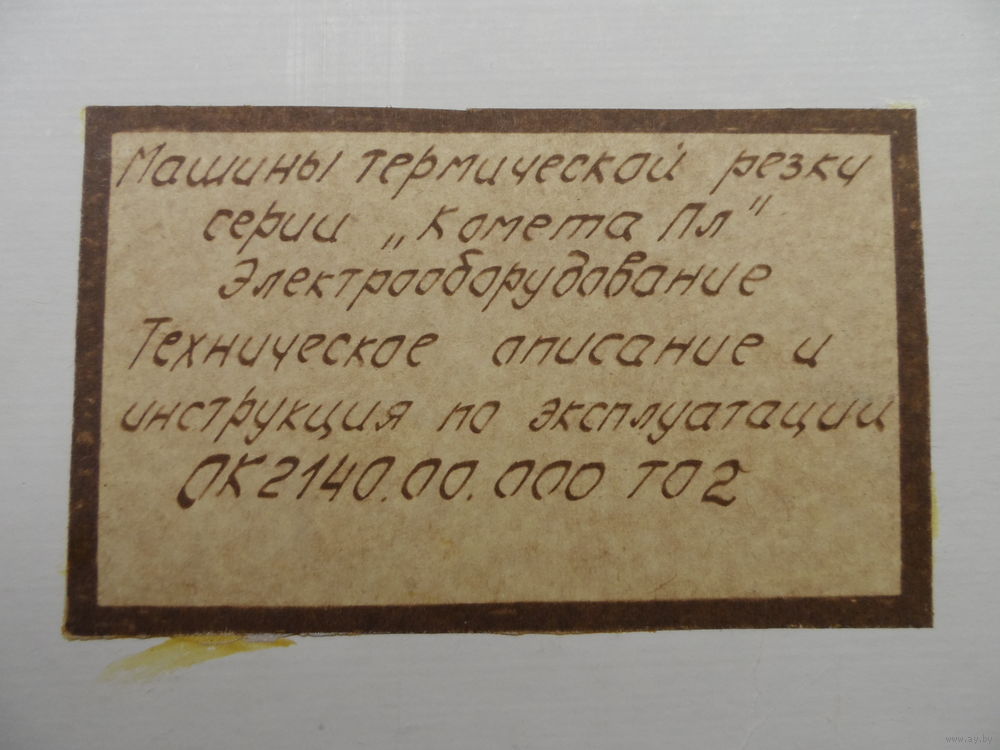 Машины термической резки
серии „Комета Пл"
Электрооборудование
Техническое описание и
инструкция по эксплуатации
ОК2140.00.000 ТО2
www.ay.by